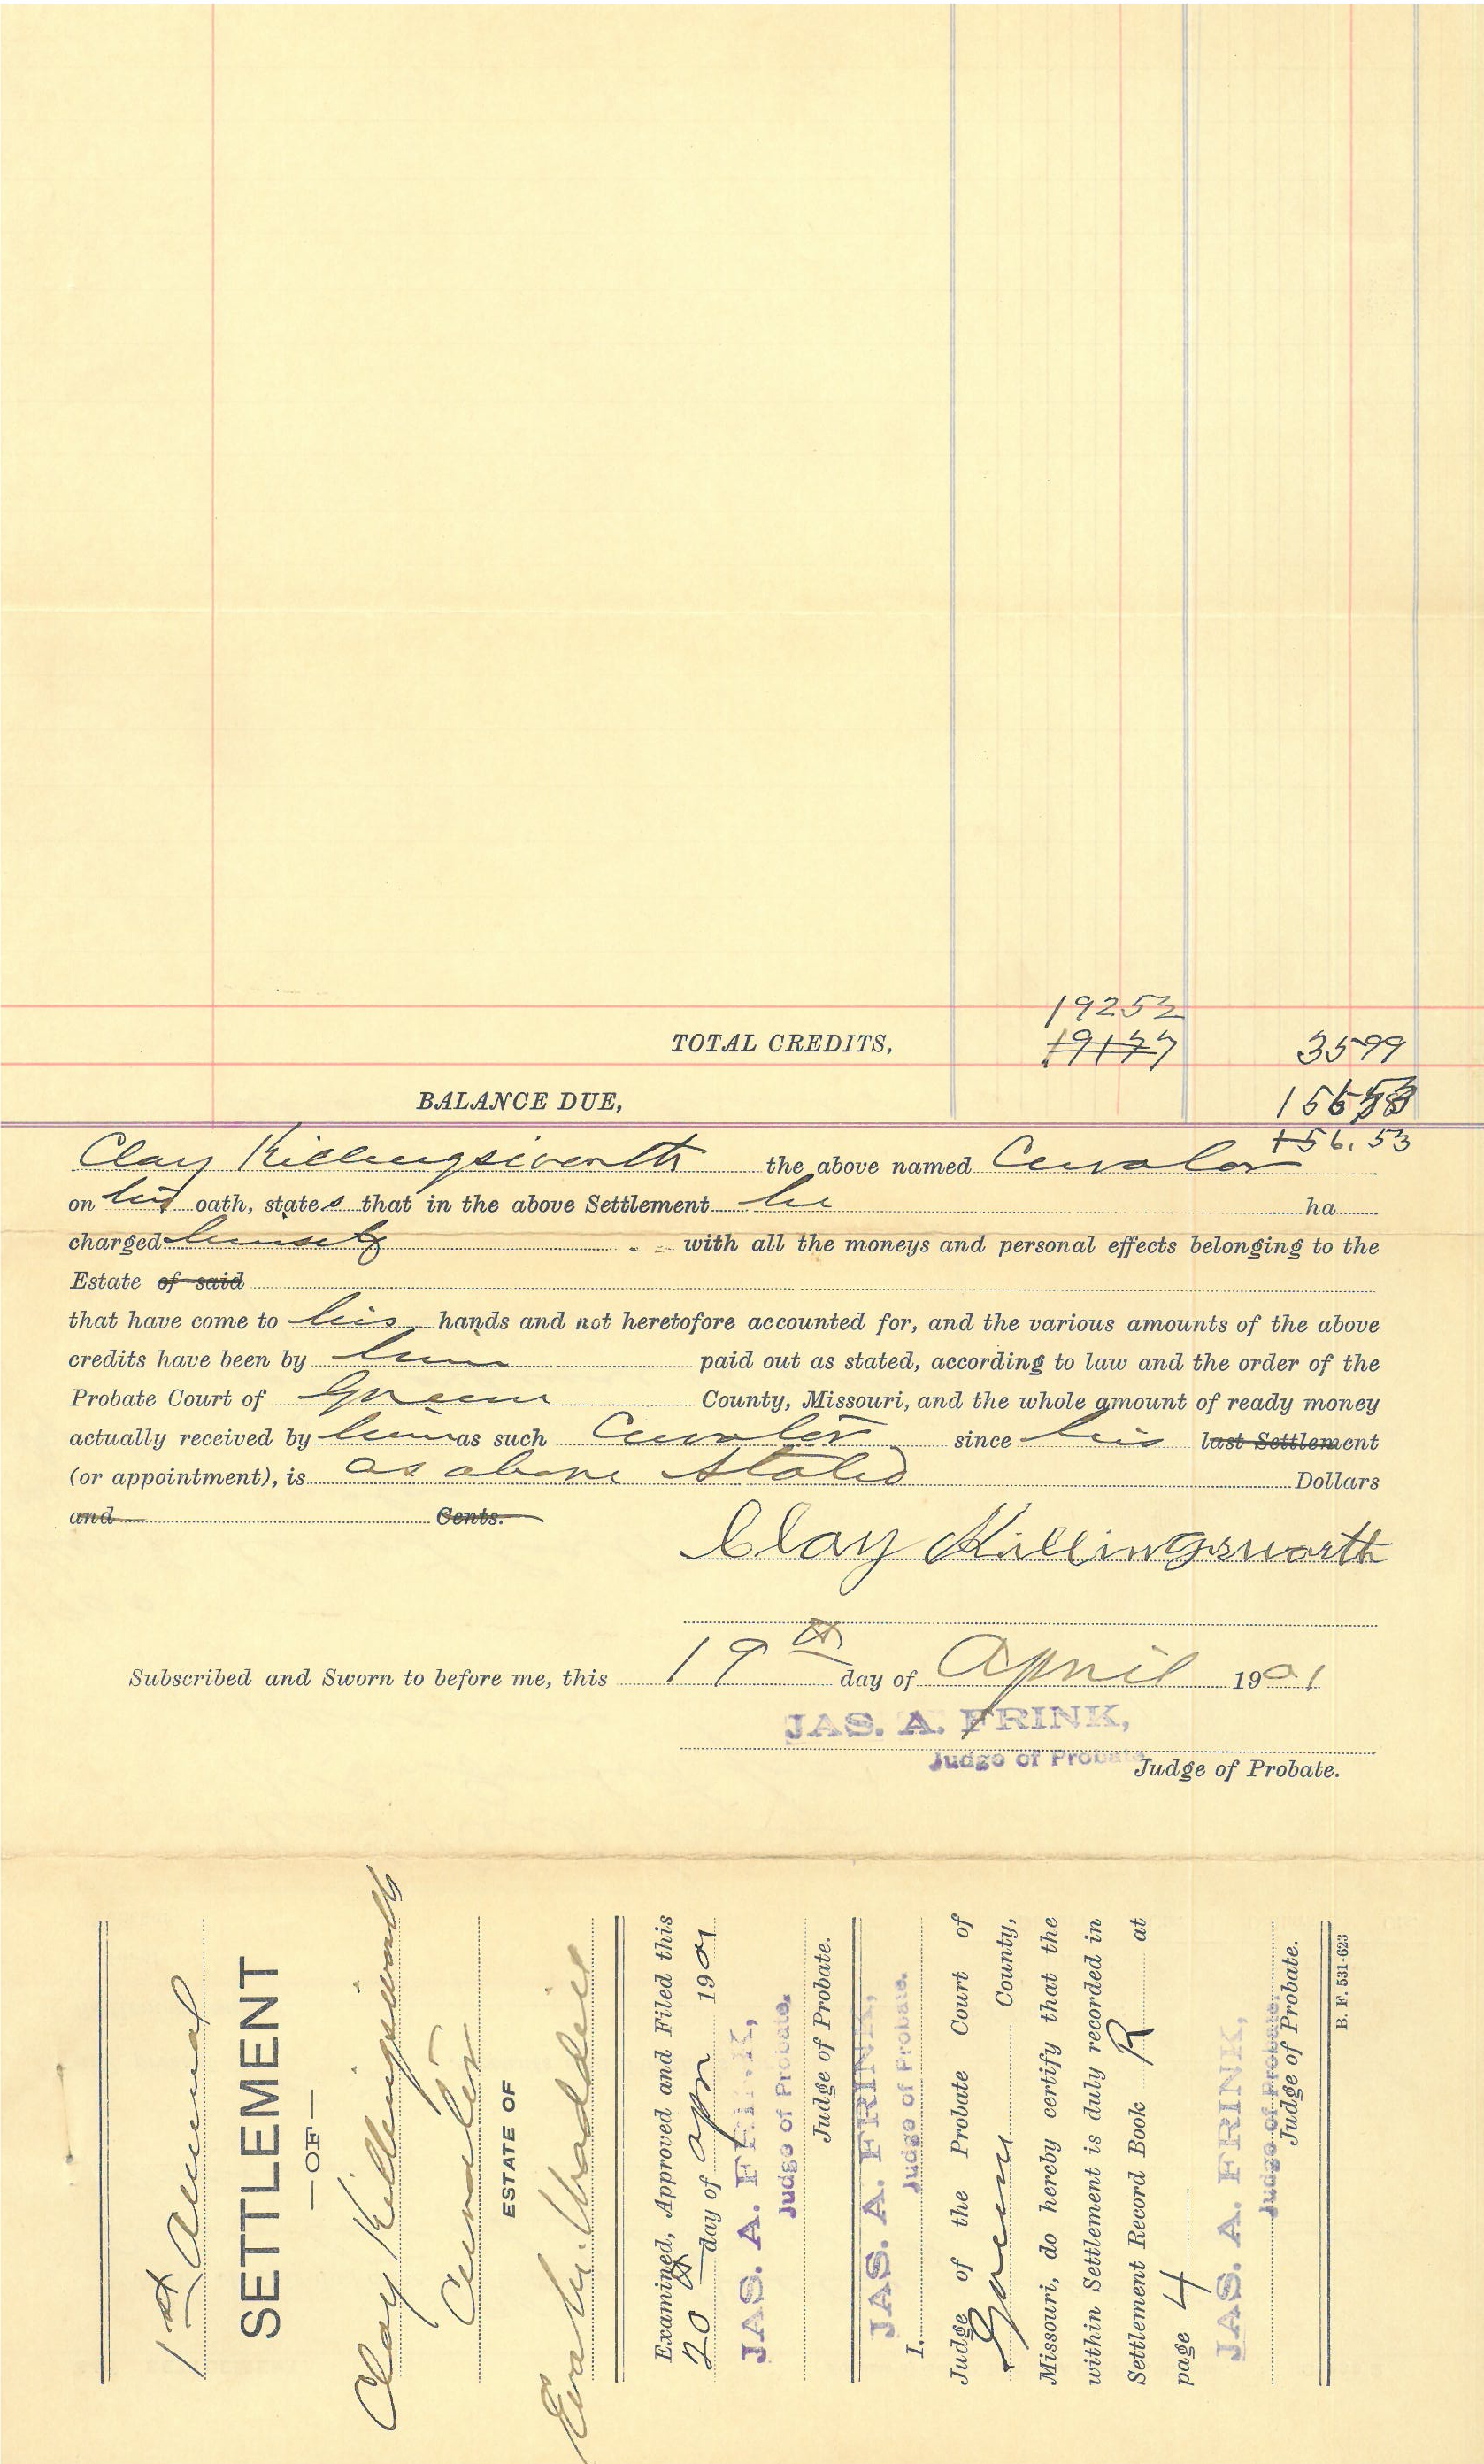 19252
TOTAL CREDITS, 19177 3599
BALANCE DUE,
156.53
Clay Killingsworth the above named Curator
on his oath, states that in the above Settlement he ha
charged himself with all the moneys and personal effects belonging to the
Estate of said
that have come to his hands and not heretofore accounted for, and the various amounts of the above
credits have been by him paid out as stated, according to law and the order of the
Probate Court of Greene County, Missouri, and the whole amount of ready money
actually received by him as such Curator since his last Settlement
(or appointment), is as above stated Dollars
and Cents.
Clay Killingsworth
Subscribed and Sworn to before me, this 19th day of April 1901
JAS. A. FRINK,
Judge of Probate
Judge of Probate.
1st Annual
SETTLEMENT
—OF—
Clay Killingsworth
Curator
ESTATE OF
Eva M.
Examined, Approved and Filed this
20th day of Apr 1901
JAS. A. FRINK,
Judge of Probate.
Judge of Probate.
JAS. A. FRINK,
Judge of Probate.
I,
Judge of the Probate Court of
Greene County,
Missouri, do hereby certify that the
within Settlement is duly recorded in
Settlement Record Book R at
page 4
JAS. A. FRINK,
Judge of Probate.
Judge of Probate.
B. F. 531-623